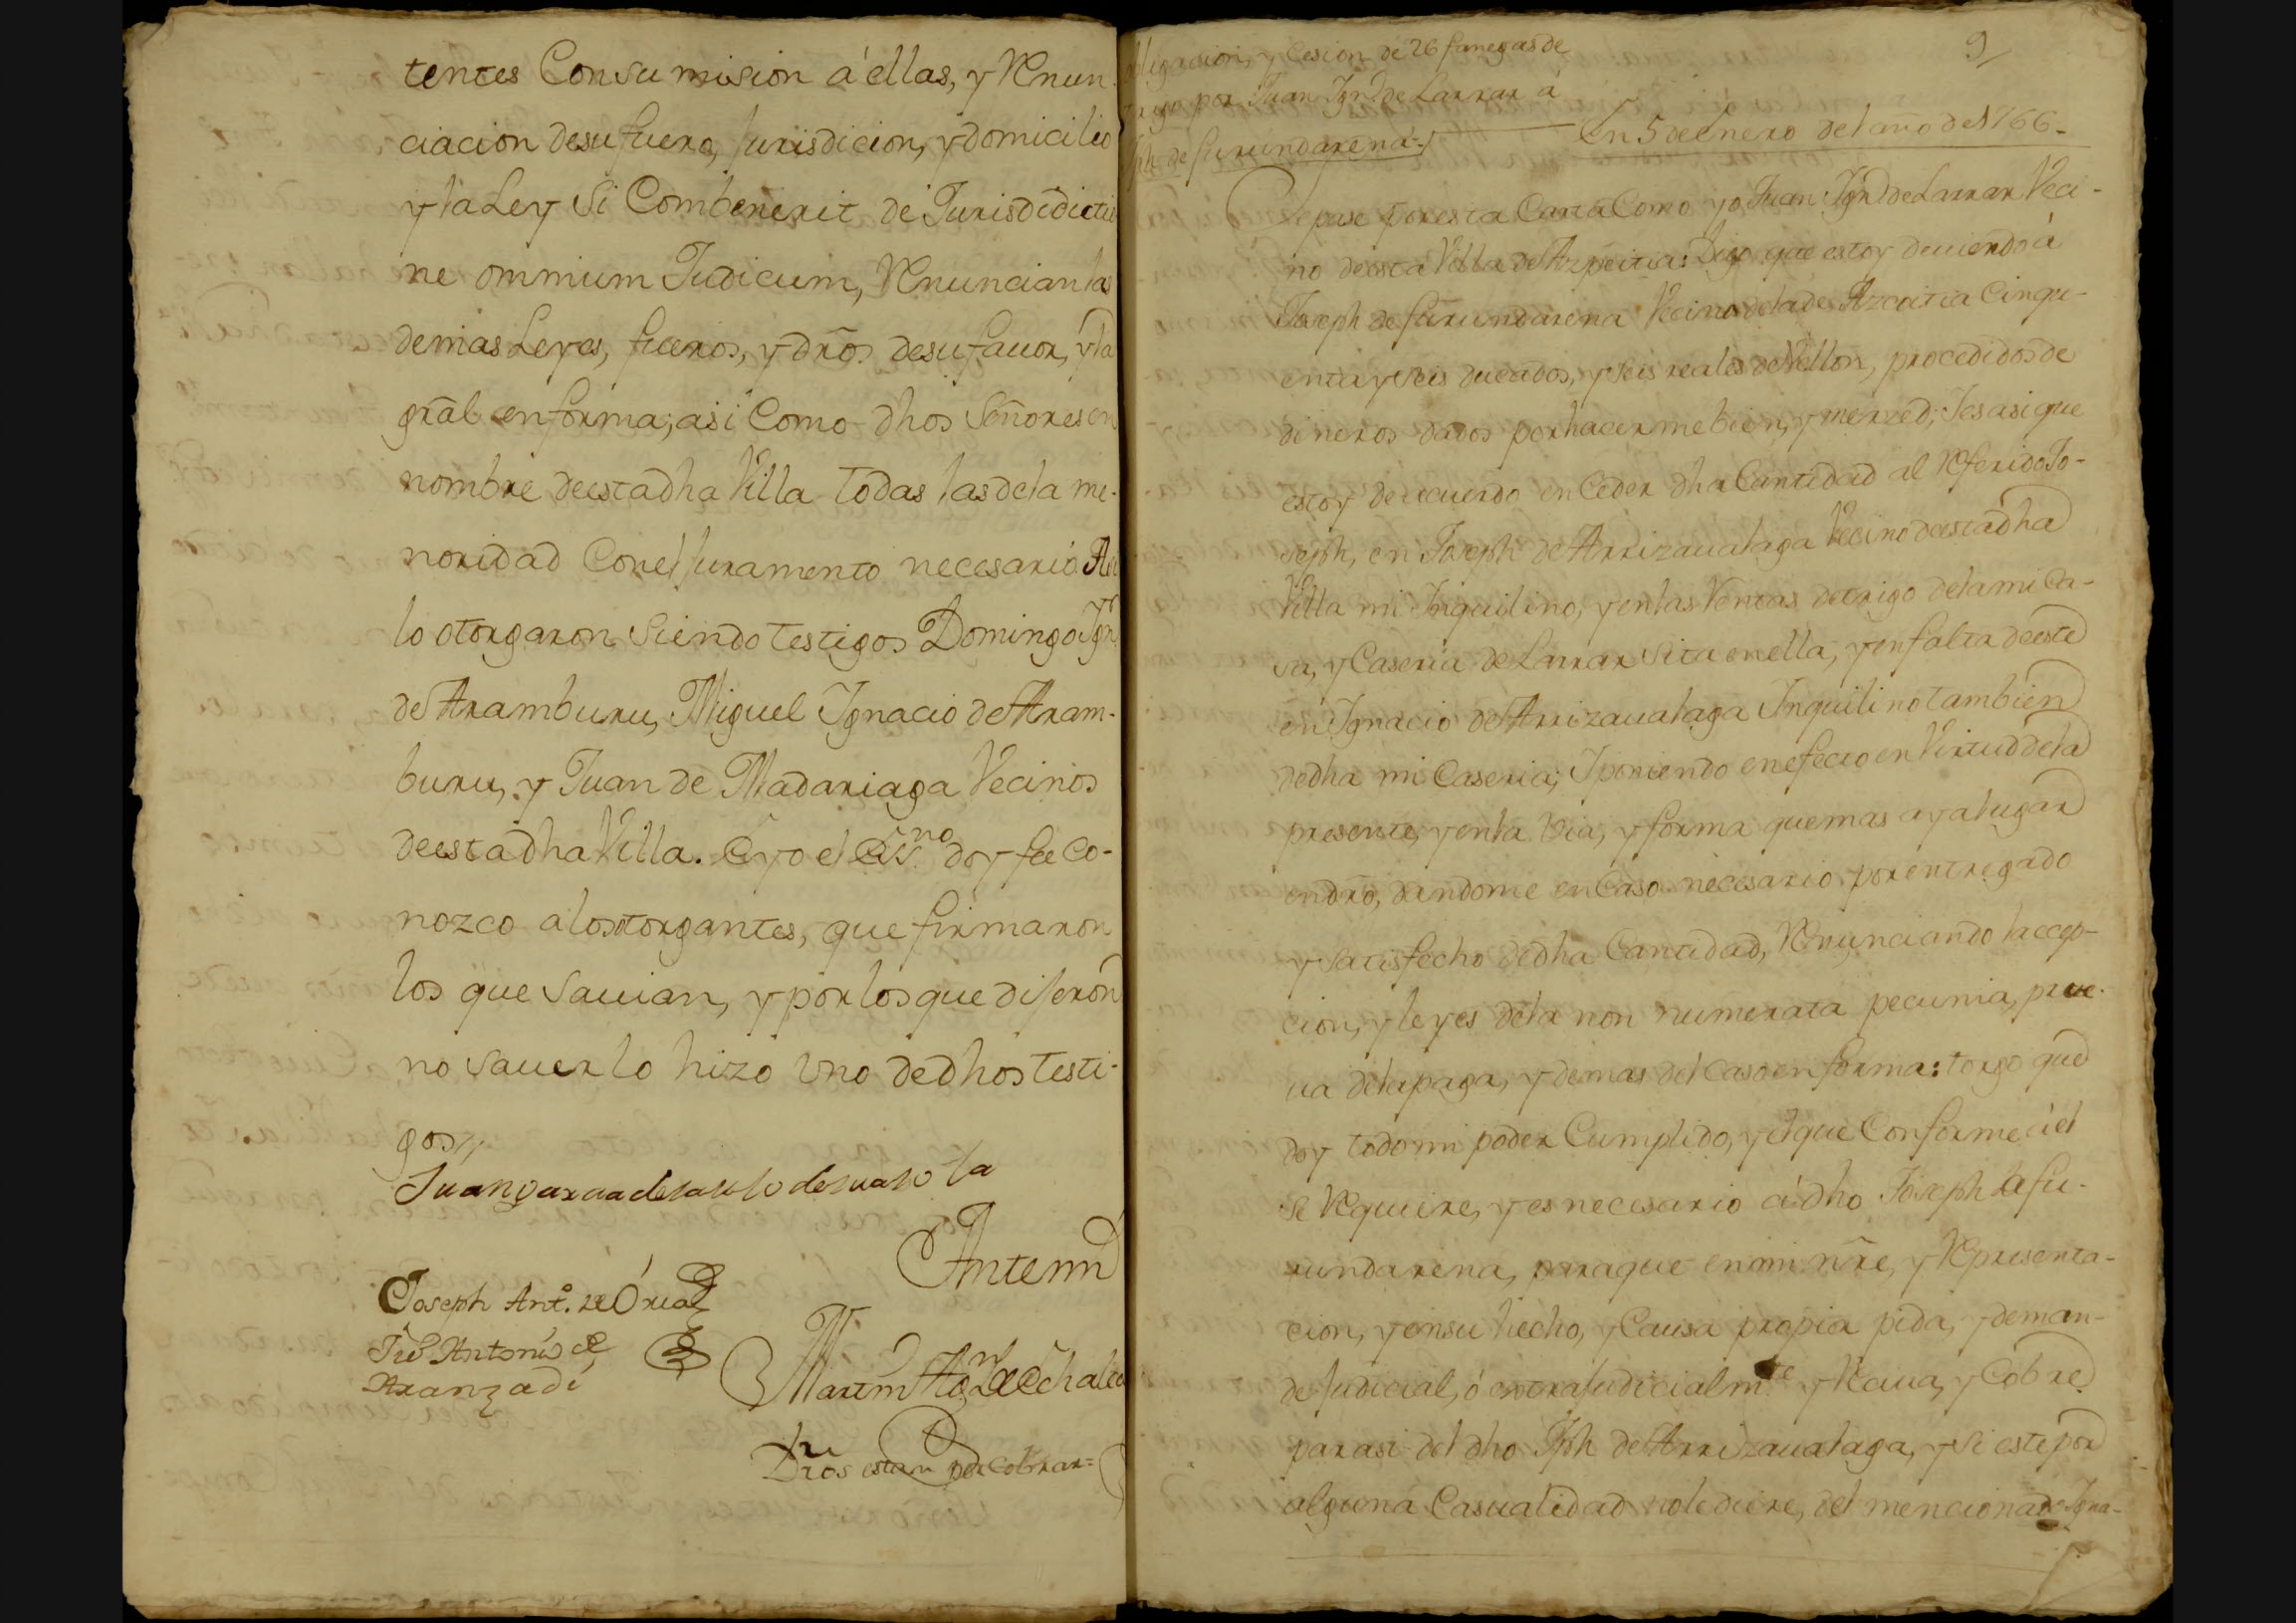 tentes Con sumision á ellas, y Renun-
ciacion de su fuero, Jurisdicion, y domicilio
y la Ley Si Combenerit de Jurisdidictio
ne ommium Judicum, Renuncian las
demas Leyes, fueros, y dros. de su fauor, y la
gral en forma; asi Como dhos Señores en
nombre de esta dha Villa todas las de la me-
noridad Con el Juramento necesario. Asi
lo otorgaron Siendo testigos Domingo Ign.
de Aramburu, Miguel Ignacio de Aram-
buru, y Juan de Madariaga Vecinos
de esta dha Villa. E yo el Ess.no doy fee co-
nozco a los otorgantes, que firmaron
los que sauian, y por los que dijeron
no sauer lo hizo Vno de dhos testi-
gos//
Juan
Antemi
Joseph Ant.o de Oria
Antonio de
Aranzadi
Martin
Dros estan por cobrar=
obligacion, y Cesion de 26 fanegas de
trigo por Juan Ign.o de Larrar á
Jph. de Jurundarena
9
En 5 de Enero del año de 1766-
Sepase por esta Carta Como yo Juan Ign.o de Larrar Veci-
no de esta Villa de Azpeitia: Digo que estoy deuiendo á
Joseph de Jurundarena Vecino de la de Azcoitia Cinqu-
enta y seis ducados, y seis reales de Vellon, procedidos de
dineros dados por hacerme bien, y merzed; Y es asi que
estoy de acuerdo en Ceder dha Cantidad al Referido Jo-
seph, en Joseph de Arrizaualaga Vecino de esta dha
Villa mi Inquilino, y en las Ventas de trigo de la mi Ca-
sa, y Caseria de Larrar sita en ella, y en falta de este
en Ignacio de Arrizaualaga Inquilino tambien
de dha mi Caseria; Y poniendo en efecto en Virtud de la
presente, y en la via, y forma que mas aya lugar
en dro, dandome en Caso necesario por entregado
y satisfecho de dha Cantidad, Renunciando la ecep-
cion, y leyes de la non numerata pecunia, prue-
ua de la paga, y demas del caso en forma: torgo que
doy todo mi poder Cumplido, y el que Conforme á el
se Requiere, y es necesario á dho Joseph de Ju-
rundarena, para que en mi nre, y Representa-
cion, y en su hecho, y Causa propia pida, y deman-
de Judicial, ó extraJudicialm.te y Reciua, y Cobre
para si del dho Jph de Arrizaualaga, y si este por
alguna Casualidad no le diere, del mencionado Igna-